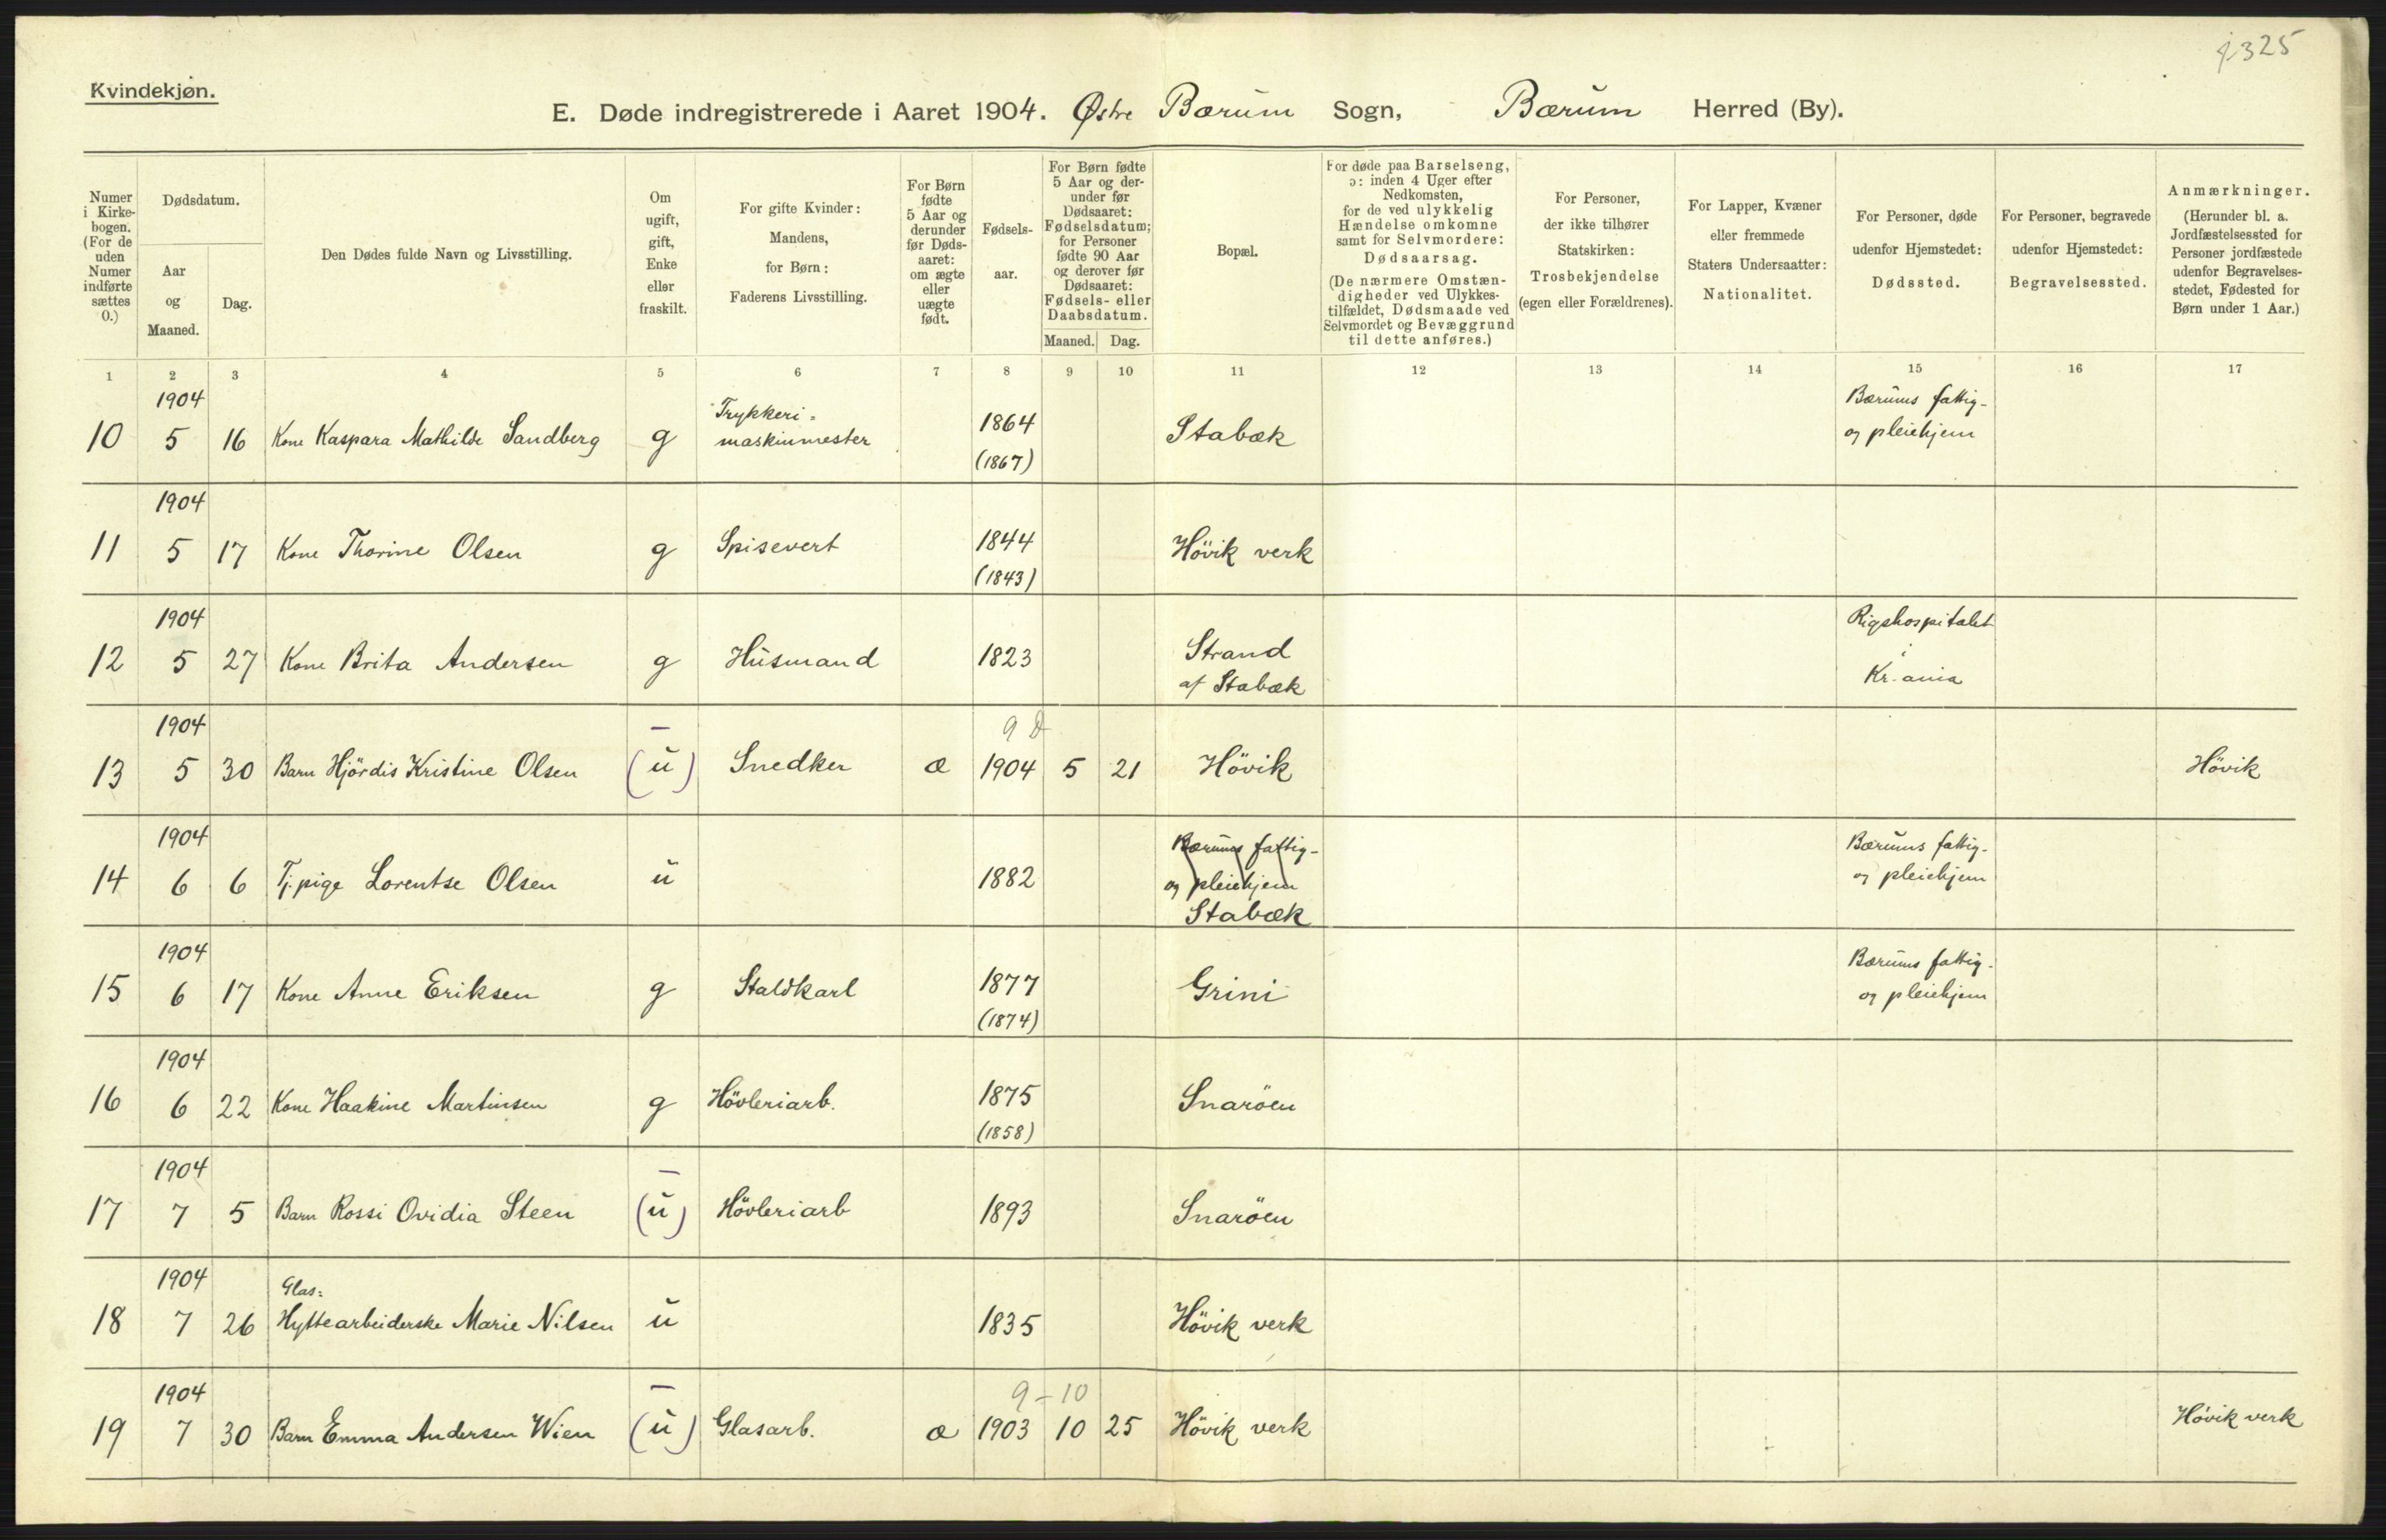 325
Kvindekjøn.
E. Døde indregistrerede i Aaret 1904. Østre Bærum Sogn, Bærum Herred (By).
Numer i Kirkebogen. (For de uden Numer indførte sættes 0.)
Dødsdatum.
Aar og Maaned.
Dag.
Den Dødes fulde Navn og Livsstilling.
Om ugift, gift, Enke eller fraskilt.
For gifte Kvinder: Mandens, for Børn: Faderens Livsstilling.
For Børn fødte 5 Aar og derunder før Dødsaaret: om ægte eller uægte født.
Fødselsaar.
For Børn fødte 5 Aar og derunder før Dødsaaret: Fødselsdatum; for Personer fødte 90 Aar og derover før Dødsaaret: Fødsels- eller Daabsdatum.
Maaned. Dag.
Bopæl.
For døde paa Barselseng, ɔ: inden 4 Uger efter Nedkomsten, for de ved ulykkelig Hændelse omkomne samt for Selvmordere: Dødsaarsag. (De nærmere Omstændigheder ved Ulykkestilfældet, Dødsmaade ved Selvmordet og Bevæggrund til dette anføres.)
For Personer, der ikke tilhører Statskirken: Trosbekjendelse (egen eller Forældrenes).
For Lapper, Kvæner eller fremmede Staters Undersaatter: Nationalitet.
For Personer, døde udenfor Hjemstedet: Dødssted.
For Personer, begravede udenfor Hjemstedet: Begravelsessted.
Anmærkninger. (Herunder bl. a. Jordfæstelsessted for Personer jordfæstede udenfor Begravelsesstedet, Fødested for Børn under 1 Aar.)
1 2 3 4 5 6 7 8 9 10 11 12 13 14 15 16 17
1904 Trykkeri= Bærums fattig-
10 5 16 Kone Kaspara Mathilde Sandberg g maskinmester 1864 Stabæk og pleiehjem
(1867)
1904
11 5 17 Kone Thorine Olsen g Spisevert 1844 Hövik verk
(1843)
1904 Rigshospitalet
12 5 27 Kone Brita Andersen g Husmand 1823 Strand i
af Stabæk Kr.ania
1904 — 9 D
13 5 30 Barn Hjördis Kristine Olsen (u) Snedker æ 1904 5 21 Hövik Hövik
1904 Bærums fattig- Bærums fattig-
14 6 6 Tj.pige Lorentse Olsen u 1882 og pleiehjem og pleiehjem
Stabæk
1904 Bærums fattig-
15 6 17 Kone Anne Eriksen g Staldkarl 1877 Grini og pleiehjem
(1874)
1904
16 6 22 Kone Haakine Martinsen g Hövleriarb. 1875 Snaröen
(1858)
1904 —
17 7 5 Barn Rossi Ovidia Steen (u) Hövleriarb 1893 Snaröen
1904 Glas=
18 7 26 Hyttearbeiderske Marie Nilsen u 1835 Hövik verk
1904 — 9-10
19 7 30 Barn Emma Andersen Wien (u) Glasarb. æ 1903 10 25 Hövik verk Hövik verk